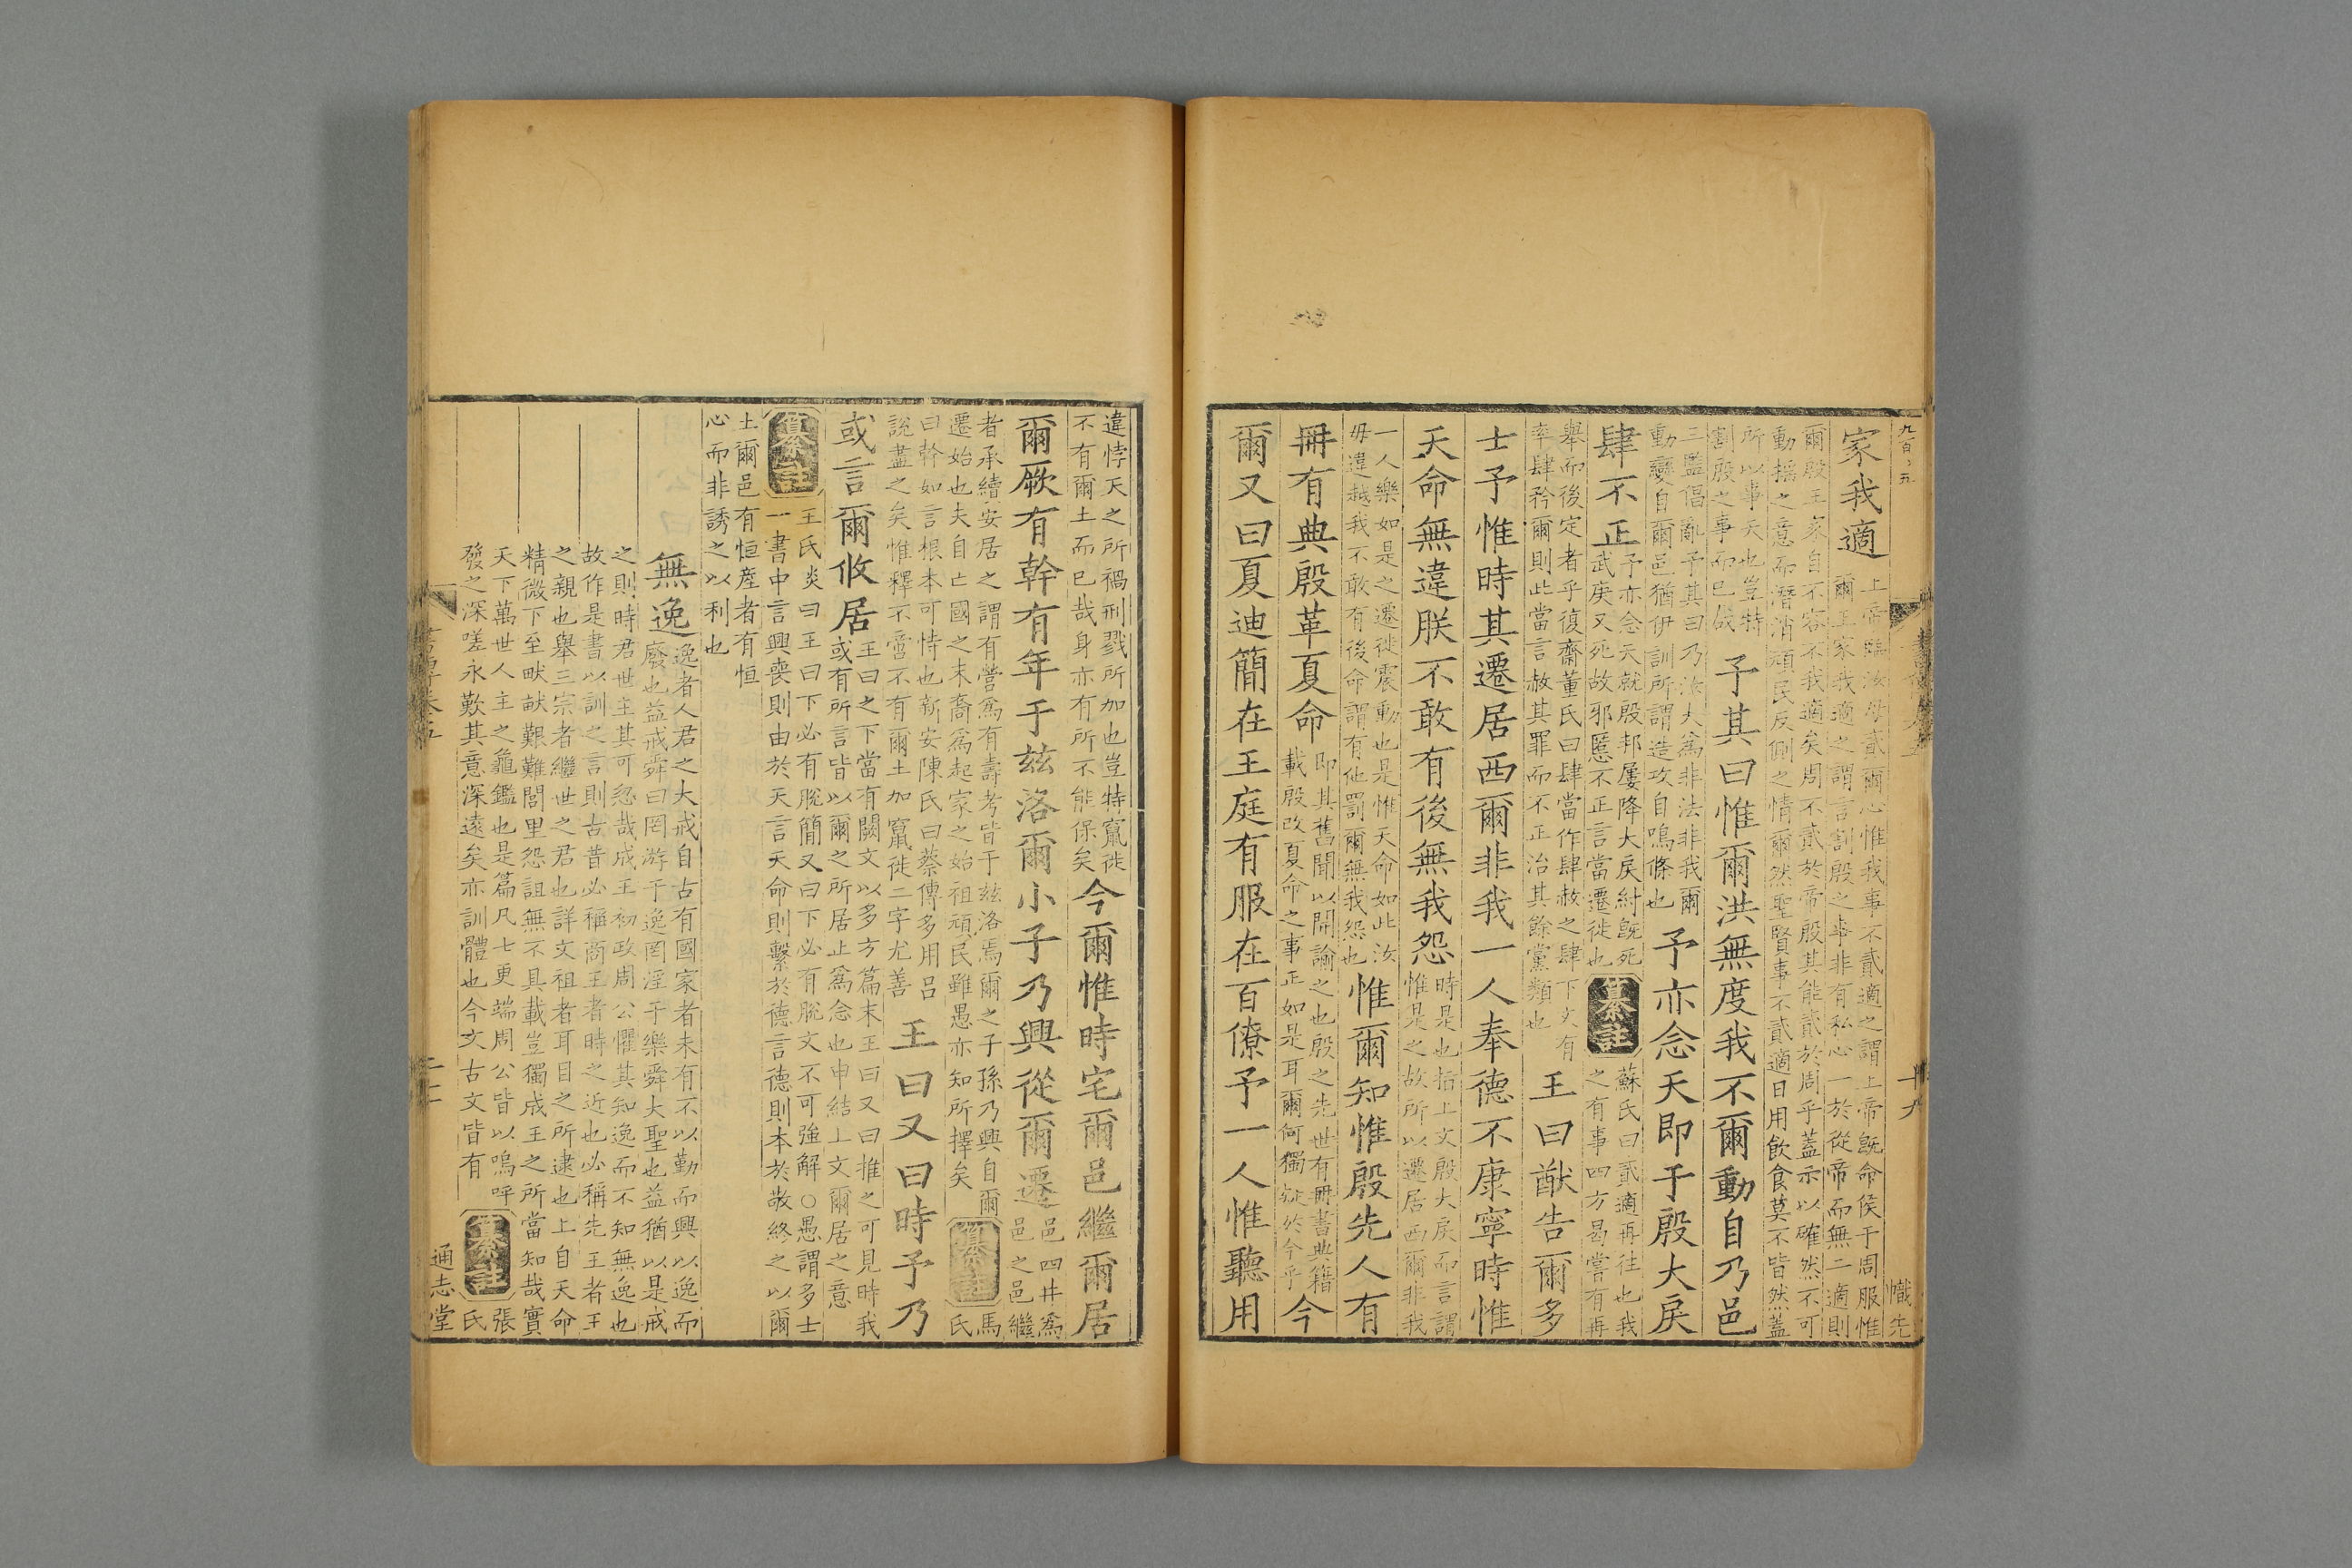 家我適
上帝臨汝毋貳爾心惟我事不貳適之謂上帝旣命侯于周服惟
爾王家我適之謂言割殷之事非有私心一於從帝而無二適則
爾殷王家自不容不我適矣周不貳於帝殷其能貳於周乎蓋示以確然不可
動搖之意而潛消頑民反側之情爾然聖賢事不貳適日用飲食莫不皆然蓋
所以事天也豈特
割殷之事而已哉
予其曰惟爾洪無度我不爾動自乃邑
三監倡亂予其曰乃汝大爲非法非我爾
動變自爾邑猶伊訓所謂造攻自鳴條也
予亦念天即于殷大戾
肆不正
予亦念天就殷邦屢降大戾紂旣死
武庚又死故邪慝不正言當遷徙也
纂註
蘇氏曰貳適再往也我
之有事四方曷嘗有再
舉而後定者乎復齋董氏曰肆當作肆赦之肆下文有
率肆矜爾則此當言赦其罪而不正治其餘黨類也
王曰猷告爾多
士予惟時其遷居西爾非我一人奉德不康寧時惟
天命無違朕不敢有後無我怨
時是也指上文殷大戾而言謂
惟是之故所以遷居西爾非我
一人樂如是之遷徙震動也是惟天命如此汝
毋違越我不敢有後命謂有他罰爾無我怨也
惟爾知惟殷先人有
冊有典殷革夏命
即其舊聞以開諭之也殷之先世有冊書典籍
載殷改夏命之事正如是耳爾何獨疑於今乎
今
爾又曰夏迪簡在王庭有服在百僚予一人惟聽用
違悖天之所禍刑戮所加也豈特竄徙
不有爾土而已哉身亦有所不能保矣
今爾惟時宅爾邑繼爾居
爾厥有幹有年于玆洛爾小子乃興從爾遷
邑四井爲
邑之邑繼
者承續安居之謂有營爲有壽考皆于玆洛焉爾之子孫乃興自爾
遷始也夫自亡國之末裔爲起家之始祖頑民雖愚亦知所擇矣
纂註
馬
氏
曰幹如言根本可恃也新安陳氏曰蔡傳多用呂
說盡之矣惟釋不啻不有爾土加竄徙二字尤善
王曰又曰時予乃
或言爾攸居
王曰之下當有闕文以多方篇末王曰又曰推之可見時我
或有所言皆以爾之所居止爲念也申結上文爾居之意
纂註
王氏炎曰王曰下必有脫簡又曰下必有脫文不可強解○愚謂多士
一書中言興喪則由於天言天命則繫於德言德則本於敬終之以爾
土爾邑有恒產者有恒
心而非誘之以利也
無逸
逸者人君之大戒自古有國家者未有不以勤而興以逸而
廢也益戒舜曰罔游于逸罔淫于樂舜大聖也益猶以是戒
之則時君世主其可忽哉成王初政周公懼其知逸而不知無逸也
故作是書以訓之言則古昔必稱商王者時之近也必稱先王者王
之親也舉三宗者繼世之君也詳文祖者耳目之所逮也上自天命
精微下至畎畝艱難閭里怨詛無不具載豈獨成王之所當知哉實
天下萬世人主之龜鑑也是篇凡七更端周公皆以嗚呼
發之深嗟永歎其意深遠矣亦訓體也今文古文皆有
纂註
張
氏
通志堂